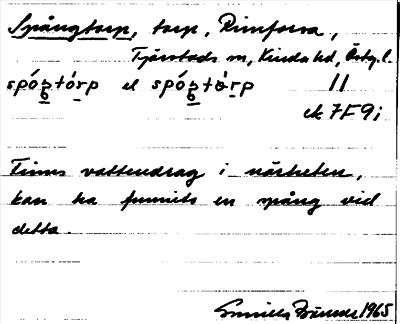 Spångtorp, torp, Rimforsa,
Tjärstads sn, Kinda hd, Östg. l.
spógtórp el spógtòrp 11
ek 7F9i
Finns vattendrag i närheten,
kan ha funnits en spång vid
detta.
Gunilla 1965